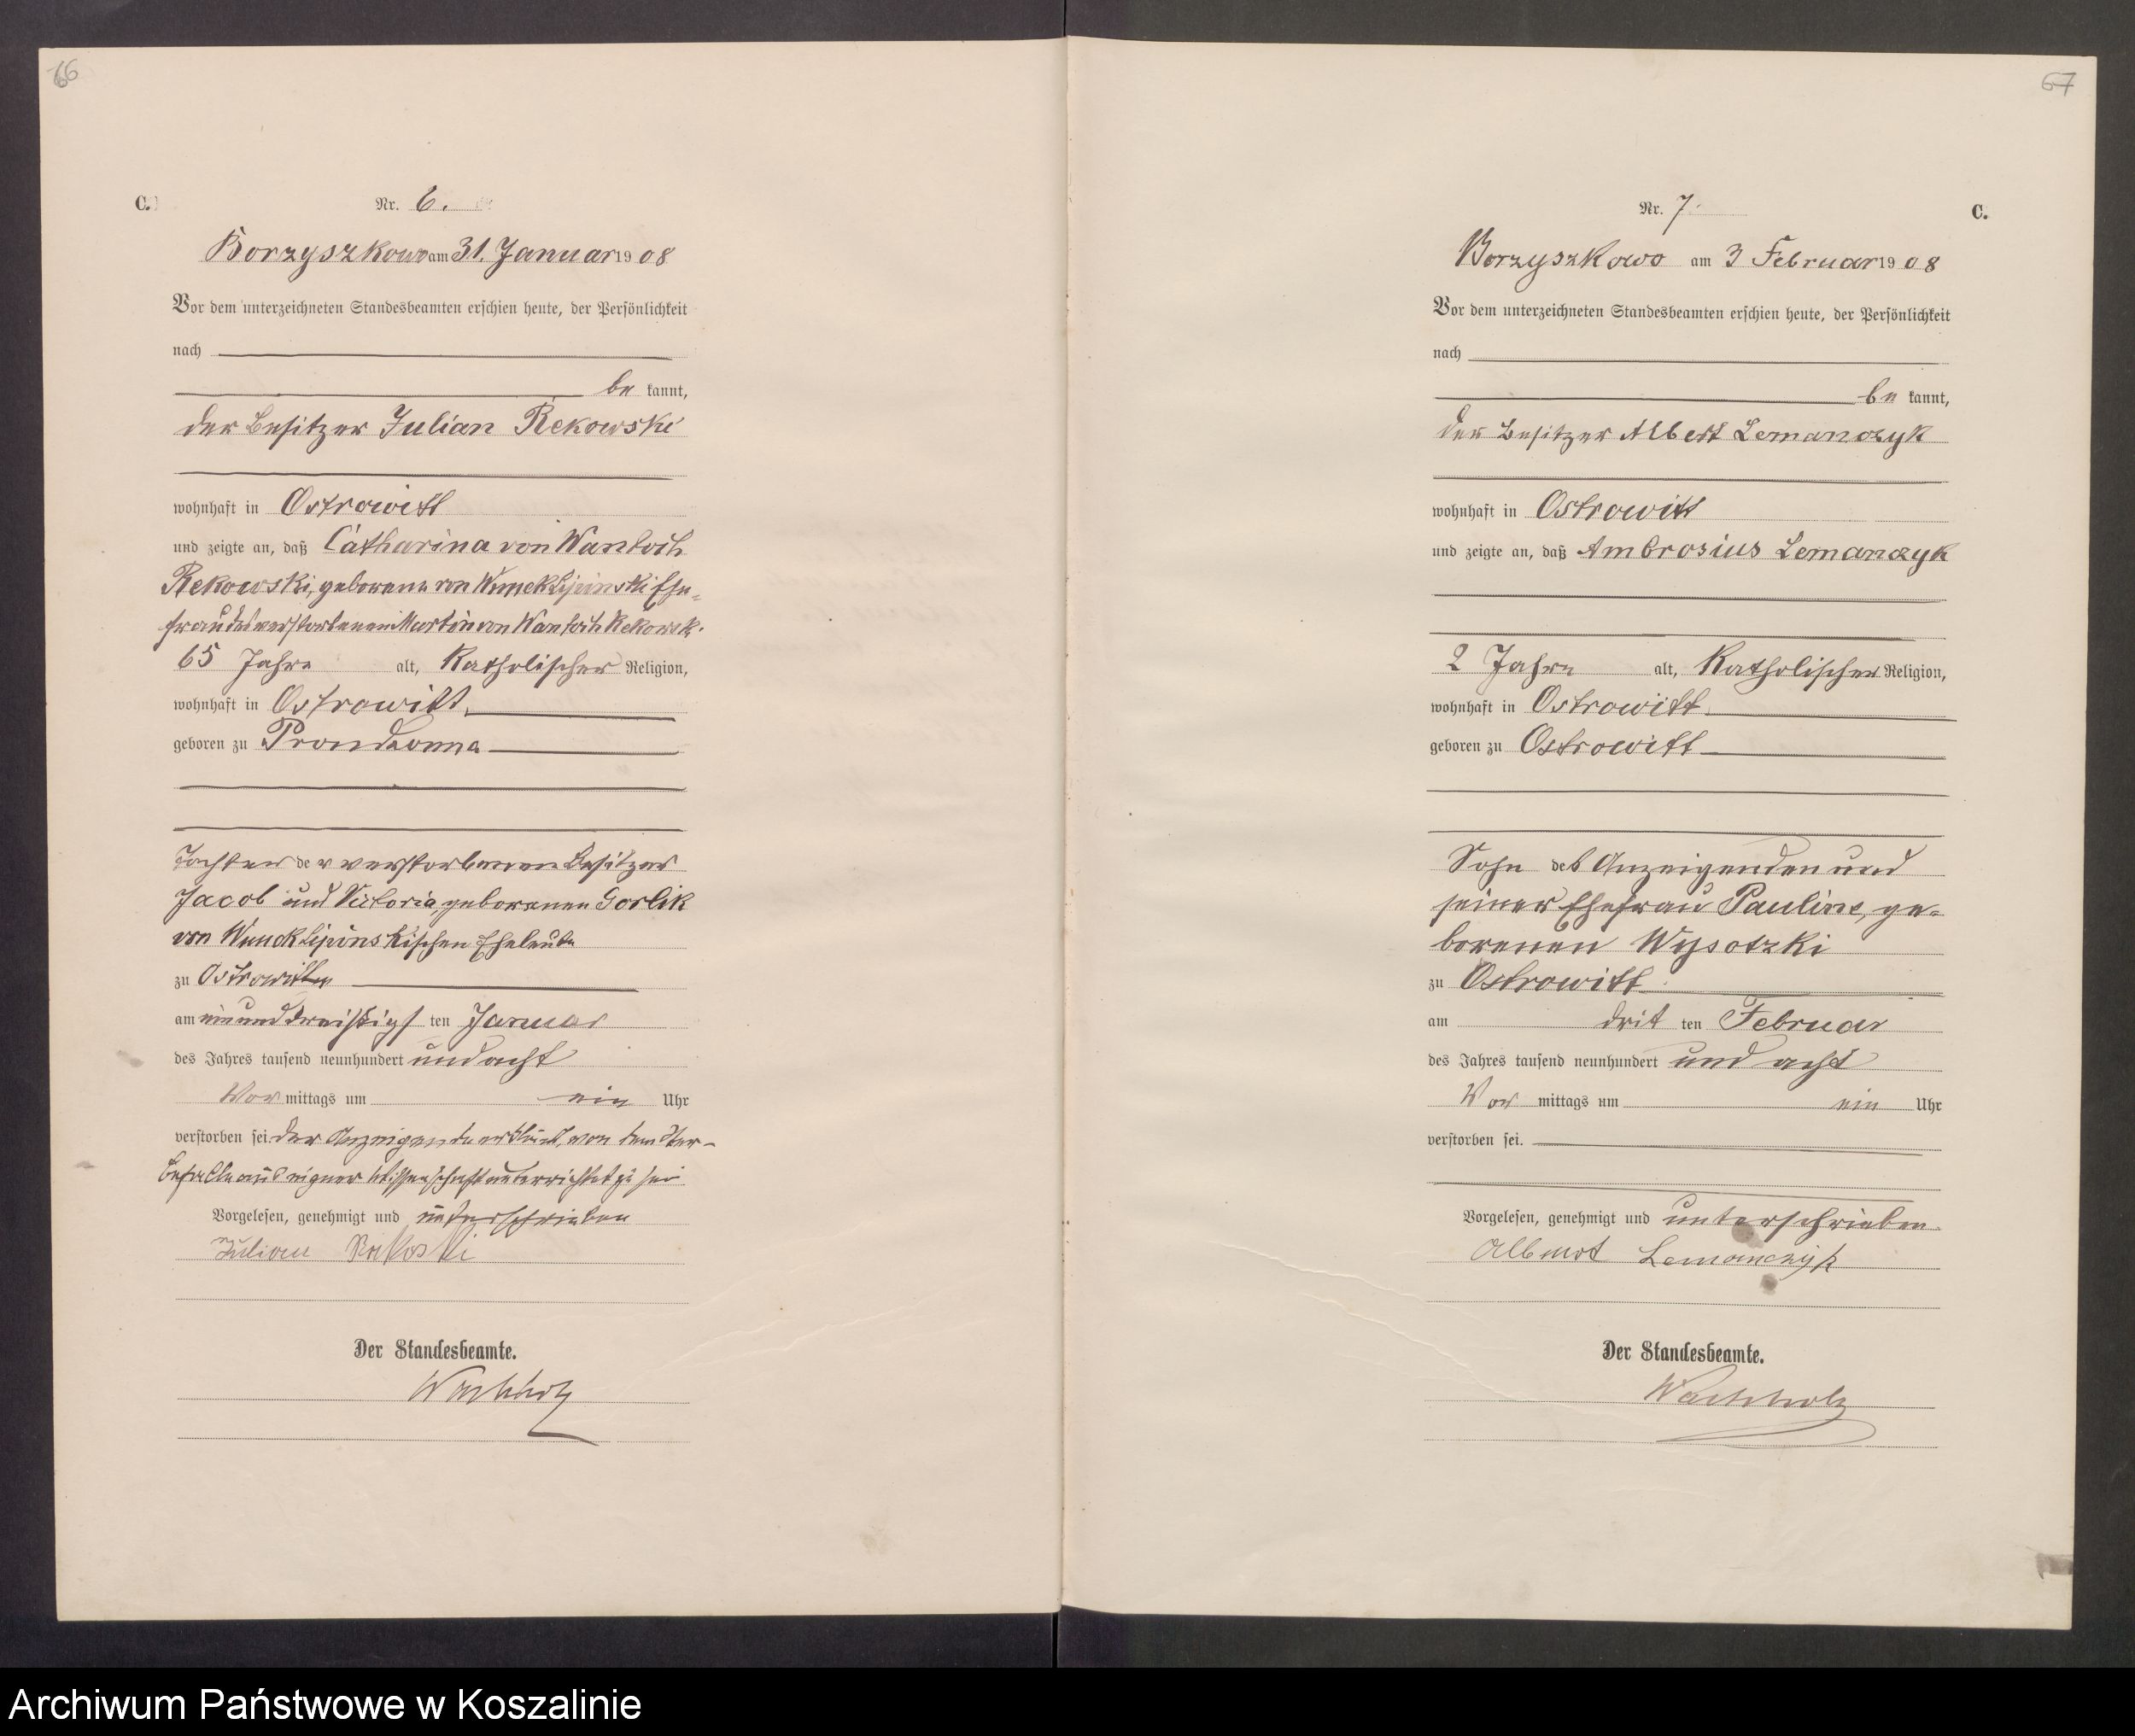 66
C.
Nr. 6.
Borzyszkowo am 31. Januar 1908
Vor dem unterzeichneten Standesbeamten erschien heute, der Persönlichkeit
nach
be kannt,
der Besitzer Julian Rekowski
wohnhaft in Ostrowitt
und zeigte an, daß Catharina von Wantoch
Rekowski, geborene von Wnuck Lipinski Ehe-
frau des verstorbenen Martin von Wantoch Rekowski
65 Jahre alt, Katholischer Religion,
wohnhaft in Ostrowitt,
geboren zu Prondzonna
Tochter der verstorbenen Besitzer
Jacob und Victoria, geborenen Gorlik
von Wnuck Lipinskischen Eheleute
zu Ostrowitt
am einunddreißigsten Januar
des Jahres tausend neunhundert und acht
Vor mittags um ein Uhr
verstorben sei. Der Anzeigende erklärt, von dem Ster-
befalle aus eigner Wissenschaft unterrichtet zu sein
Vorgelesen, genehmigt und unterschrieben
Julian Rekoski
Der Standesbeamte.
Wachholz
67
C.
Nr. 7.
Borzyszkowo am 3 Februar 1908
Vor dem unterzeichneten Standesbeamten erschien heute, der Persönlichkeit
nach
be kannt,
der Besitzer Albert Lemanczyk
wohnhaft in Ostrowitt
und zeigte an, daß Ambrosius Lemanczyk
2 Jahre alt, Katholischer Religion,
wohnhaft in Ostrowitt
geboren zu Ostrowitt
Sohn des Anzeigenden und
seiner Ehefrau Pauline, ge-
borenen Wysotzki
zu Ostrowitt
am dritten Februar
des Jahres tausend neunhundert und acht
Vor mittags um ein Uhr
verstorben sei.
Vorgelesen, genehmigt und unterschrieben.
Albert Lemanczyk
Der Standesbeamte.
Wachholz
Archiwum Państwowe w Koszalinie